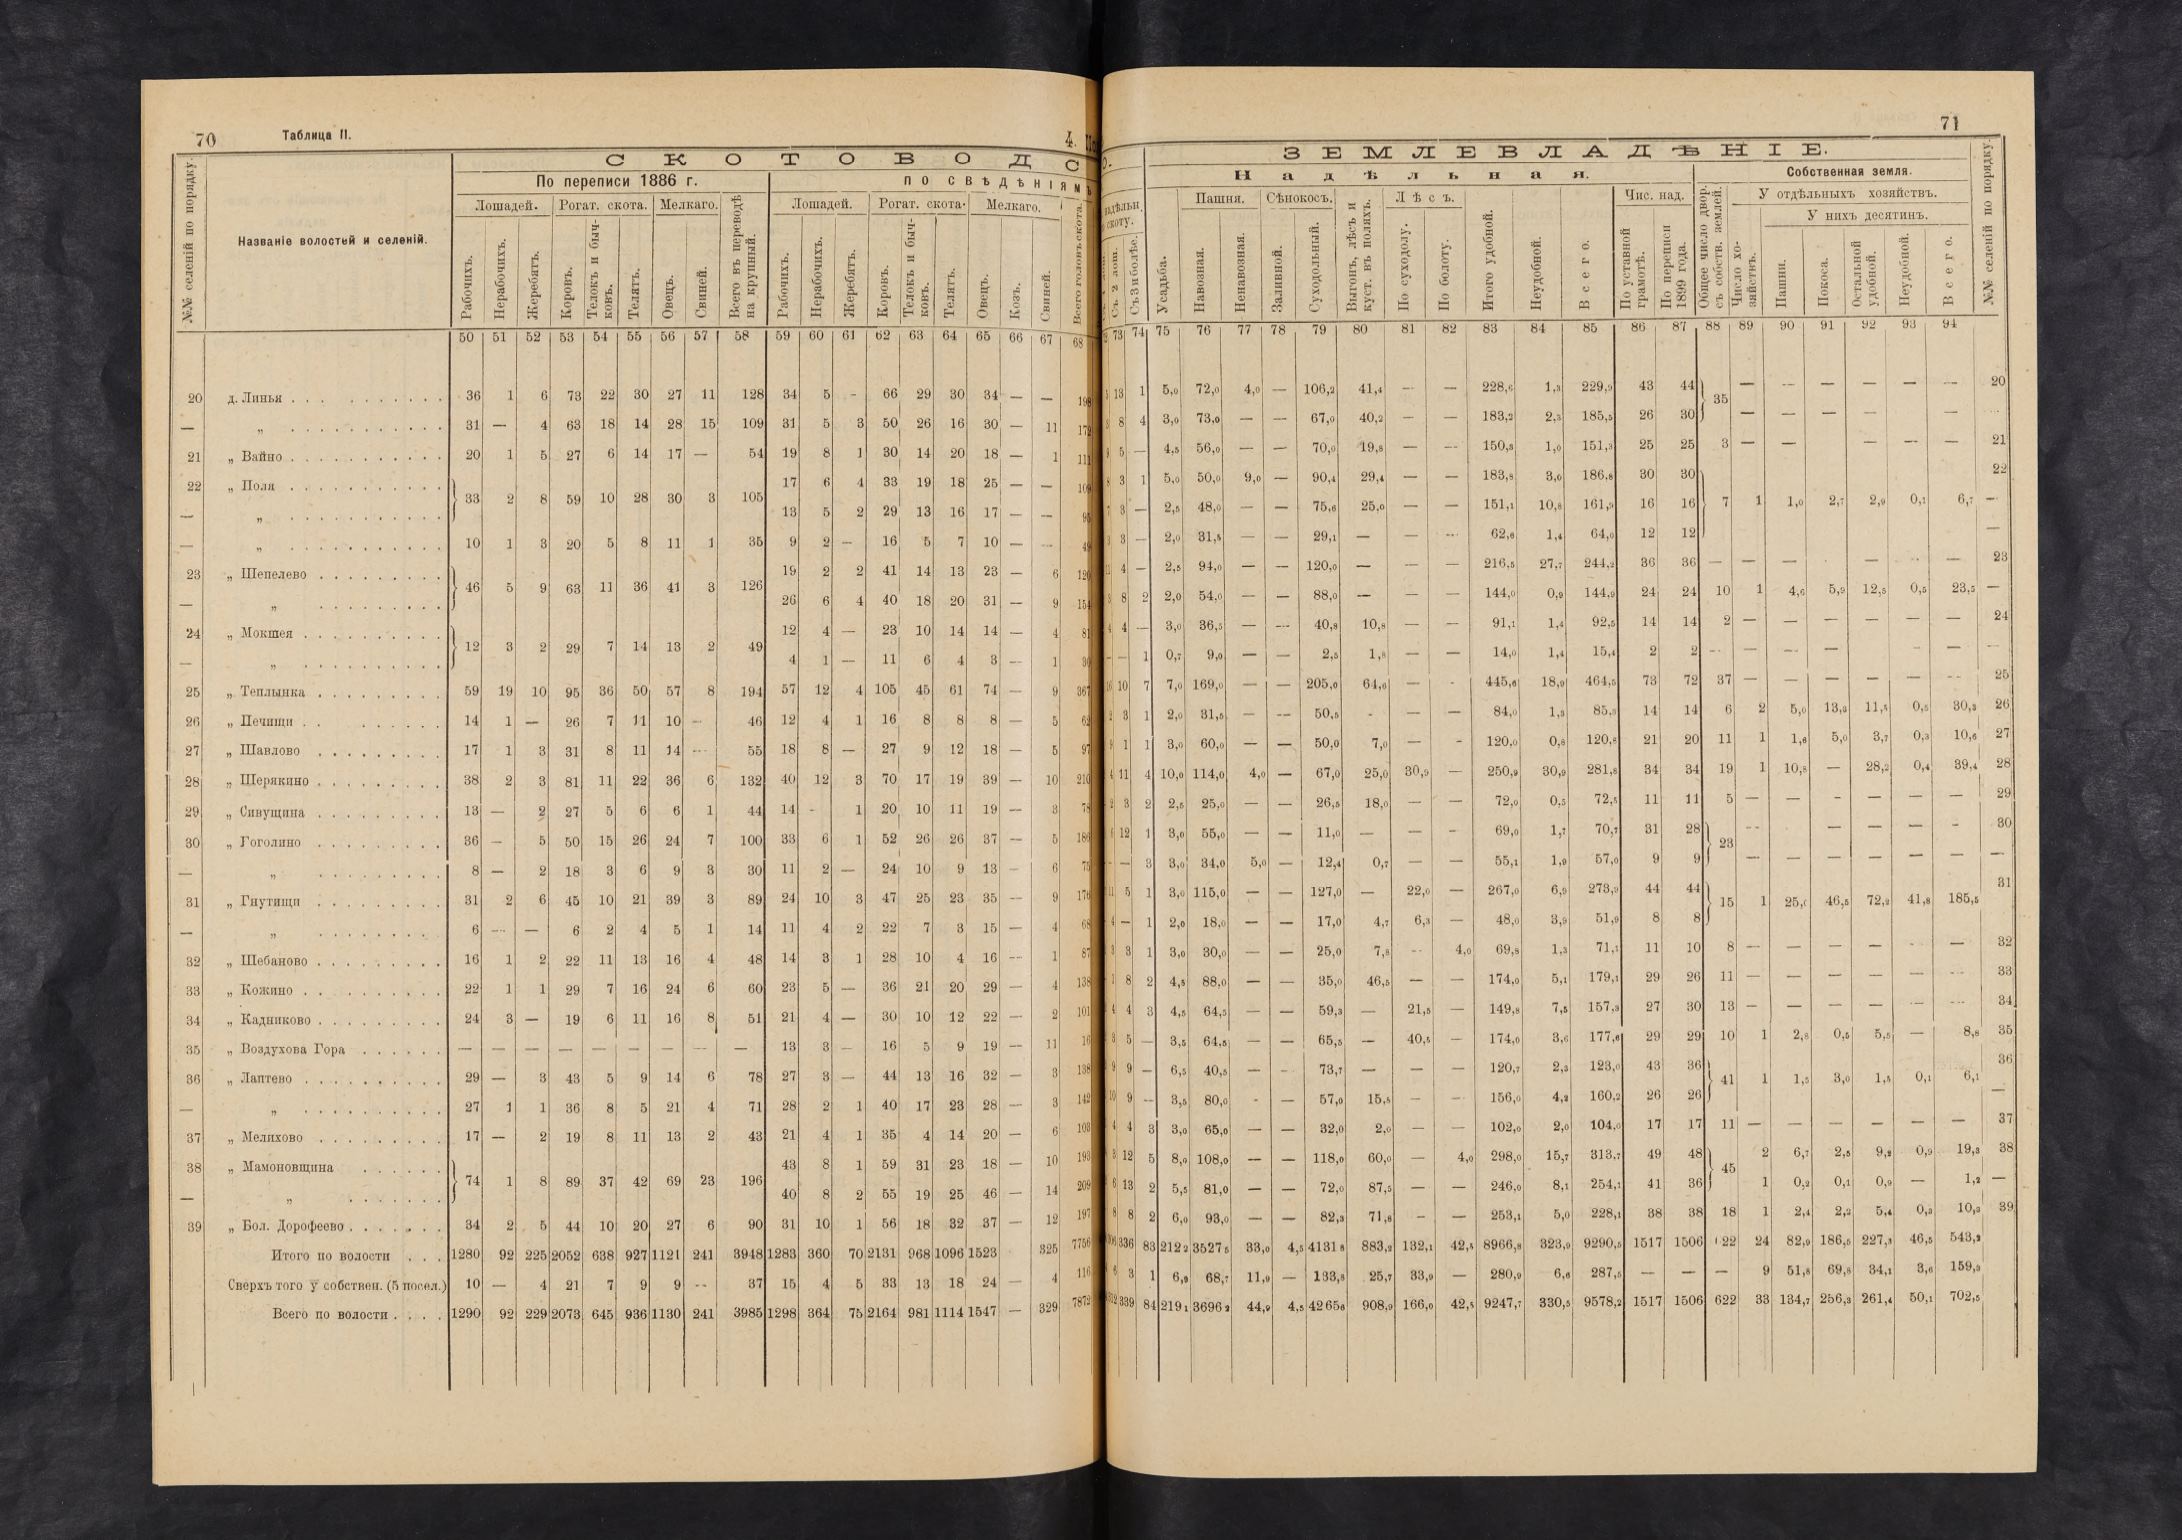 70 Таблица II. 4.
С К О Т О В О Д С
По переписи 1886 г. по свѣдѣніямъ
Лошадей. Рогат. скота. Мелкаго. Лошадей. Рогат. скота. Мелкаго.
№№ селеній по порядку.
Названіе волостей и селеній.
Рабочихъ. Нерабочихъ. Жеребятъ. Коровъ. Телокъ и бычковъ. Телятъ. Овецъ. Свиней. Всего въ переводѣ на крупный. Рабочихъ. Нерабочихъ. Жеребятъ. Коровъ. Телокъ и бычковъ. Телятъ. Овецъ. Козъ. Свиней. Всего головъ скота.
50 51 52 53 54 55 56 57 58 59 60 61 62 63 64 65 66 67 68
20 д. Линья 36 1 6 73 22 30 27 11 128 34 5 - 66 29 30 34 — — 198
— „ 31 — 4 63 18 14 28 15 109 31 5 3 50 26 16 30 — 11 172
21 „ Вайно 20 1 5 27 6 14 17 — 54 19 8 1 30 14 20 18 — 1 111
22 „ Поля 33 2 8 59 10 28 30 3 105 17 6 4 33 19 18 25 — —
— „ 13 5 2 29 13 16 17 — — 95
— „ 10 1 3 20 5 8 11 1 35 9 2 — 16 5 7 10 — — 49
23 „ Шепелево 46 5 9 63 11 36 41 3 126 19 2 2 41 14 13 23 — 6 120
— „ 26 6 4 40 18 20 31 — 9 154
24 „ Мокшея 12 3 2 29 7 14 13 2 49 12 4 — 23 10 14 14 — 4 81
— „ 4 1 — 11 6 4 3 — 1 30
25 „ Теплынка 59 19 10 95 36 50 57 8 194 57 12 4 105 45 61 74 — 9 367
26 „ Печищи 14 1 — 26 7 11 10 - 46 12 4 1 16 8 8 8 — 5 62
27 „ Шавлово 17 1 3 31 8 11 14 — 55 18 8 — 27 9 12 18 — 5 97
28 „ Шерякино 38 2 3 81 11 22 36 6 132 40 12 3 70 17 19 39 — 10 210
29 „ Сивущина 13 — 2 27 5 6 6 1 44 14 - 1 20 10 11 19 — 3 78
30 „ Гоголино 36 — 5 50 15 26 24 7 100 33 6 1 52 26 26 37 — 5 186
— „ 8 — 2 18 3 6 9 3 30 11 2 — 24 10 9 13 - 6 75
31 „ Гнутищи 31 2 6 45 10 21 39 3 89 24 10 3 47 25 23 35 — 9 176
— „ 6 — — 6 2 4 5 1 14 11 4 2 22 7 3 15 — 4 68
32 „ Шебаново 16 1 2 22 11 13 16 4 48 14 3 1 28 10 4 16 — 1 87
33 „ Кожино 22 1 1 29 7 16 24 6 60 23 5 — 36 21 20 29 — 4 138
34 „ Кадниково 24 3 — 19 6 11 16 8 51 21 4 — 30 10 12 22 — 2 101
35 „ Воздухова Гора — — — — — — — — — 13 3 — 16 5 9 19 — 11
36 „ Лаптево 29 — 3 43 5 9 14 6 78 27 3 — 44 13 16 32 — 3 138
— „ 27 1 1 36 8 5 21 4 71 28 2 1 40 17 23 28 — 3 142
37 „ Меляхово 17 — 2 19 8 11 13 2 43 21 4 1 35 4 14 20 — 6
38 „ Мамоновщина 74 1 8 89 37 42 69 23 196 43 8 1 59 31 23 18 — 10 193
— „ 40 8 2 55 19 25 46 — 14 209
39 „ Бол. Дорофеево 34 2 5 44 10 20 27 6 90 31 10 1 56 18 32 37 — 12 197
Итого по волости 1280 92 225 2052 638 927 1121 241 3948 1283 360 70 2131 968 1096 1523 325 7756
Сверхъ того у собствен. (5 посел.) 10 — 4 21 7 9 9 -- 37 15 4 5 33 13 18 24 — 4 116
Всего по волости 1290 92 229 2073 645 936 1130 241 3985 1298 364 75 2164 981 1114 1547 — 329 7872
71
З Е М Л Е В Л А Д Ѣ Н І Е.
Н а д ѣ л ь н а я. Собственная земля.
Пашня. Сѣнокосъ. Л ѣ с ъ. Чис. над. У отдѣльныхъ хозяйствъ.
У нихъ десятинъ.
Съ 2 лош. Съ 3 и болѣе. Усадьба. Навозная. Ненавозная. Заливной. Суходольный. Выгонъ, лѣсъ и куст. въ поляхъ. По суходолу. По болоту. Итого удобной. Неудобной. В с е г о. По уставной грамотѣ. По переписи 1899 года. Общее число двор. съ собств. землей. Число хозяйствъ. Пашни. Покоса. Остальной удобной. Неудобной. В с е г о. №№ селеній по порядку.
73 74 75 76 77 78 79 80 81 82 83 84 85 86 87 88 89 90 91 92 93 94
13 1 5,0 72,0 4,0 — 106,2 41,4 — — 228,6 1,3 229,9 43 44 35 — — — — — — 20
8 4 3,0 73,0 — — 67,0 40,2 — — 183,2 2,3 185,5 26 30 — — — — — —
5 — 4,5 56,0 — — 70,0 19,8 — — 150,3 1,0 151,3 25 25 3 — — — — — 21
3 1 5,0 50,0 9,0 — 90,4 29,4 — — 183,8 3,0 186,8 30 30 22
3 — 2,5 48,0 — — 75,6 25,0 — — 151,1 10,8 161,9 16 16 7 1 1,0 2,7 2,9 0,1 6,7 —
3 — 2,0 31,5 — — 29,1 — — — 62,6 1,4 64,0 12 12 —
4 — 2,5 94,0 — — 120,0 — — — 216,5 27,7 244,2 36 36 — — — — — — — 23
8 2 2,0 54,0 — — 88,0 — — — 144,0 0,9 144,9 24 24 10 1 4,6 5,9 12,5 0,5 23,5 —
4 — 3,0 36,5 — — 40,8 10,8 — — 91,1 1,4 92,5 14 14 2 — — — — — — 24
— 1 0,7 9,0 — — 2,5 1,8 — — 14,0 1,4 15,4 2 2 — — — — — —
10 7 7,0 169,0 — — 205,0 64,6 — - 445,6 18,9 464,5 73 72 37 — — — — — — 25
3 1 2,0 31,5 — — 50,5 - — — 84,0 1,3 85,3 14 14 6 2 5,0 13,3 11,5 0,5 30,3 26
1 1 3,0 60,0 — — 50,0 7,0 — - 120,0 0,8 120,8 21 20 11 1 1,6 5,0 3,7 0,3 10,6 27
11 4 10,0 114,0 4,0 — 67,0 25,0 30,9 — 250,9 30,9 281,8 34 34 19 1 10,8 — 28,2 0,4 39,4 28
3 2 2,5 25,0 — — 26,5 18,0 — — 72,0 0,5 72,5 11 11 5 — — - — — — 29
12 1 3,0 55,0 — — 11,0 — — — 69,0 1,7 70,7 31 28 23 — — — — — - 30
— 3 3,0 34,0 5,0 — 12,4 0,7 — — 55,1 1,9 57,0 9 9 — — — — — — —
5 1 3,0 115,0 — — 127,0 — 22,0 — 267,0 6,9 273,9 44 44 15 1 25,0 46,5 72,2 41,8 185,5 31
— 1 2,0 18,0 — — 17,0 4,7 6,3 — 48,0 3,9 51,9 8 8
3 1 3,0 30,0 — — 25,0 7,8 — 4,0 69,8 1,3 71,1 11 10 8 — — — — — — 32
8 2 4,5 88,0 — — 35,0 46,5 — — 174,0 5,1 179,1 29 26 11 — — — — — — 33
4 3 4,5 64,5 — — 59,3 — 21,5 — 149,8 7,5 157,3 27 30 13 — — — — — — 34
5 — 3,5 64,5 — — 65,5 — 40,5 — 174,0 3,6 177,6 29 29 10 1 2,8 0,5 5,5 — 8,8 35
9 — 6,5 40,5 — — 73,7 — — — 120,7 2,3 123,0 43 36 41 1 1,5 3,0 1,5 0,1 6,1 36
9 — 3,5 80,0 - — 57,0 15,5 — — 156,0 4,2 160,2 26 26 —
4 3 3,0 65,0 — — 32,0 2,0 — — 102,0 2,0 104,0 17 17 11 — — — — — — 37
12 5 8,0 108,0 — — 118,0 60,0 — 4,0 298,0 15,7 313,7 49 48 45 2 6,7 2,5 9,2 0,9 19,3 38
13 2 5,5 81,0 — — 72,0 87,5 — — 246,0 8,1 254,1 41 36 1 0,2 0,1 0,9 — 1,2 —
8 2 6,0 93,0 — — 82,3 71,8 - — 253,1 5,0 228,1 38 38 18 1 2,4 2,2 5,4 0,3 10,3 39
336 83 212 2 3527 5 33,0 4,5 4131 8 883,2 132,1 42,5 8966,8 323,9 9290,5 1517 1506 622 24 82,9 186,5 227,3 46,5 543,2
3 1 6,9 68,7 11,9 — 133,8 25,7 33,9 — 280,9 6,6 287,5 — — — 9 51,8 69,8 34,1 3,6 159,3
339 84 219 1 3696 2 44,9 4,5 4265 6 908,9 166,0 42,5 9247,7 330,5 9578,2 1517 1506 622 33 134,7 256,3 261,4 50,1 702,5